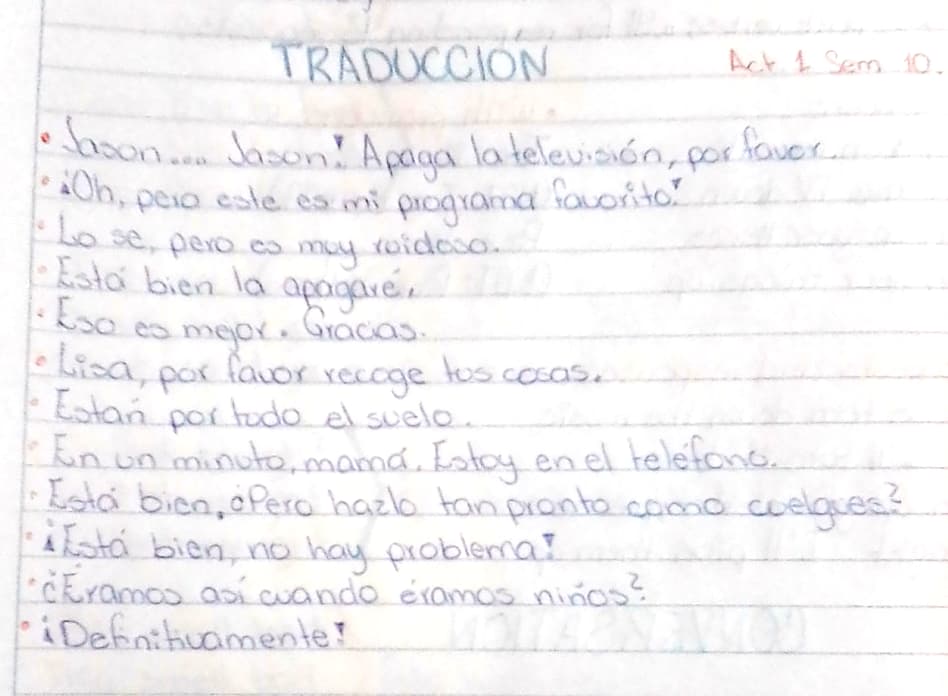 TRADUCCIÓN
Act 1 Sem 10.
• Jason.... Jason! Apaga la televisión, por favor.
• ¡Oh, pero este es mi programa favorito!
• Lo se, pero es muy ruidoso.
• Está bien la apagaré.
• Eso es mejor. Gracias.
• Lisa, por favor recoge tus cosas.
• Están por todo el suelo.
• En un minuto, mamá. Estoy en el teléfono.
• Está bien, ¿Pero hazlo tan pronto como cuelgues?
• ¡Está bien, no hay problema!
• ¿Eramos así cuando éramos niños?
• ¡Definitivamente!